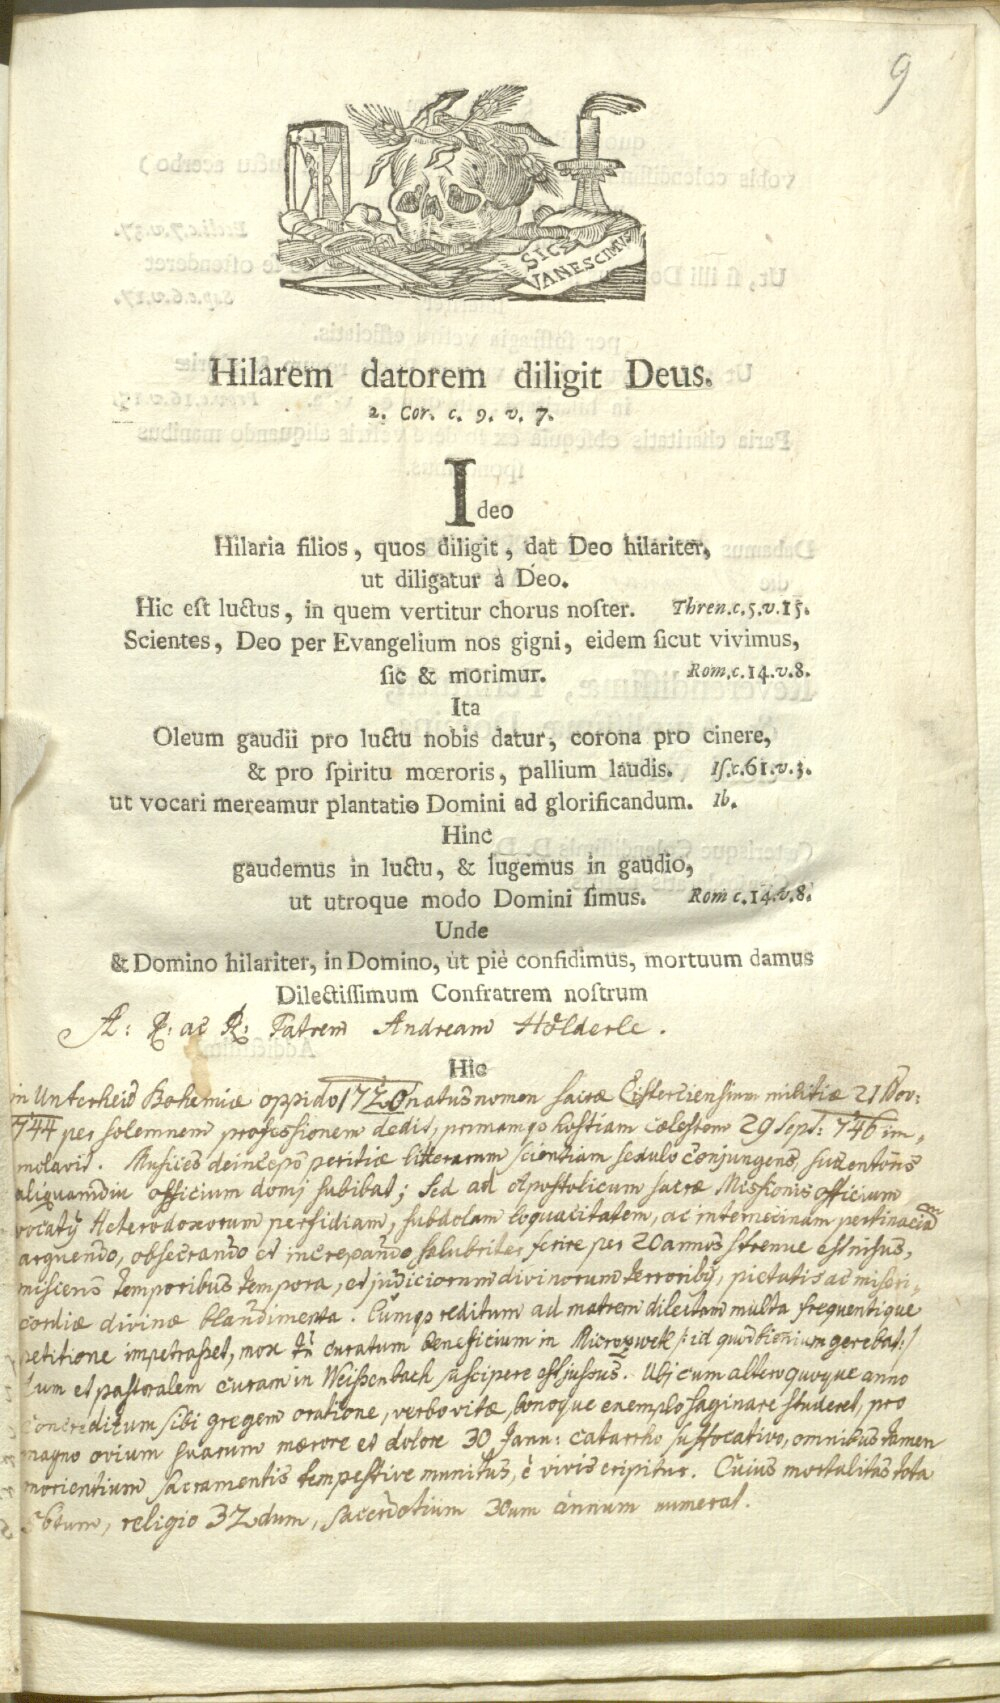 9
SIC
VANESCIMUS
Hilarem datorem diligit Deus.
2. Cor. c. 9. v. 7.
Ideo
Hilaria filios, quos diligit, dat Deo hilariter,
ut diligatur à Deo.
Hic eſt luctus, in quem vertitur chorus noſter. Thren.c.5.v.15.
Scientes, Deo per Evangelium nos gigni, eidem ſicut vivimus,
ſic & morimur. Rom.c.14.v.8.
Ita
Oleum gaudii pro luctu nobis datur, corona pro cinere,
& pro ſpiritu mœroris, pallium laudis. Iſ.c.61.v.3.
ut vocari mereamur plantatio Domini ad glorificandum. Ib.
Hinc
gaudemus in luctu, & lugemus in gaudio,
ut utroque modo Domini ſimus. Rom c.14.v.8.
Unde
& Domino hilariter, in Domino, ut piè confidimus, mortuum damus
Dilectiſſimum Confratrem noſtrum
A: R: ac R: Patrem Andream Hölderle.
Hic
in Unterheid Bohemiæ oppido 1720 natus nomen sacræ Cisterciensium militiæ 21 Nov:
744 per solemnem professionem dedit, primamqɜ hostiam cœlestem 29 Sept: 746 im-
molavit. Musices deinceps peritiæ litterarum scientiam sedulo conjungens, succentoris
aliquamdiu officium domi subibat; sed ad Apostolicum sacræ Missionis officium
vocatus Heterodoxorum perfidiam, subdolam loquacitatem, ac internecinam pertinaciam
arguendo, obsecrando et increpando salubriter ferire per 20 annos strenue est nisus,
miscens temporibus tempora, et judiciorum divinorum terroribus, pietatis ac miseri-
cordiæ divinæ blandimenta. Cumqɜ reditum ad matrem dilectam multa frequentique
petitione impetrasset, mox curatum beneficium in /: id quod gerebat :/
tum et pastoralem curam in Weissenbach suscipere est jussus. Ubi cum altero quoque anno
concreditum sibi gregem oratione, verbo vitæ, bonoque exemplo saginare studeret, pro
magno ovium suarum mœrore et dolore 30 Janu: catarrho suffocativo, omnibus tamen
morientium sacramentis tempestive munitus, è vivis eripitur. Cuius mortalitas tota
56tum, religio 32dum, sacerdotium 30um annum numerat.